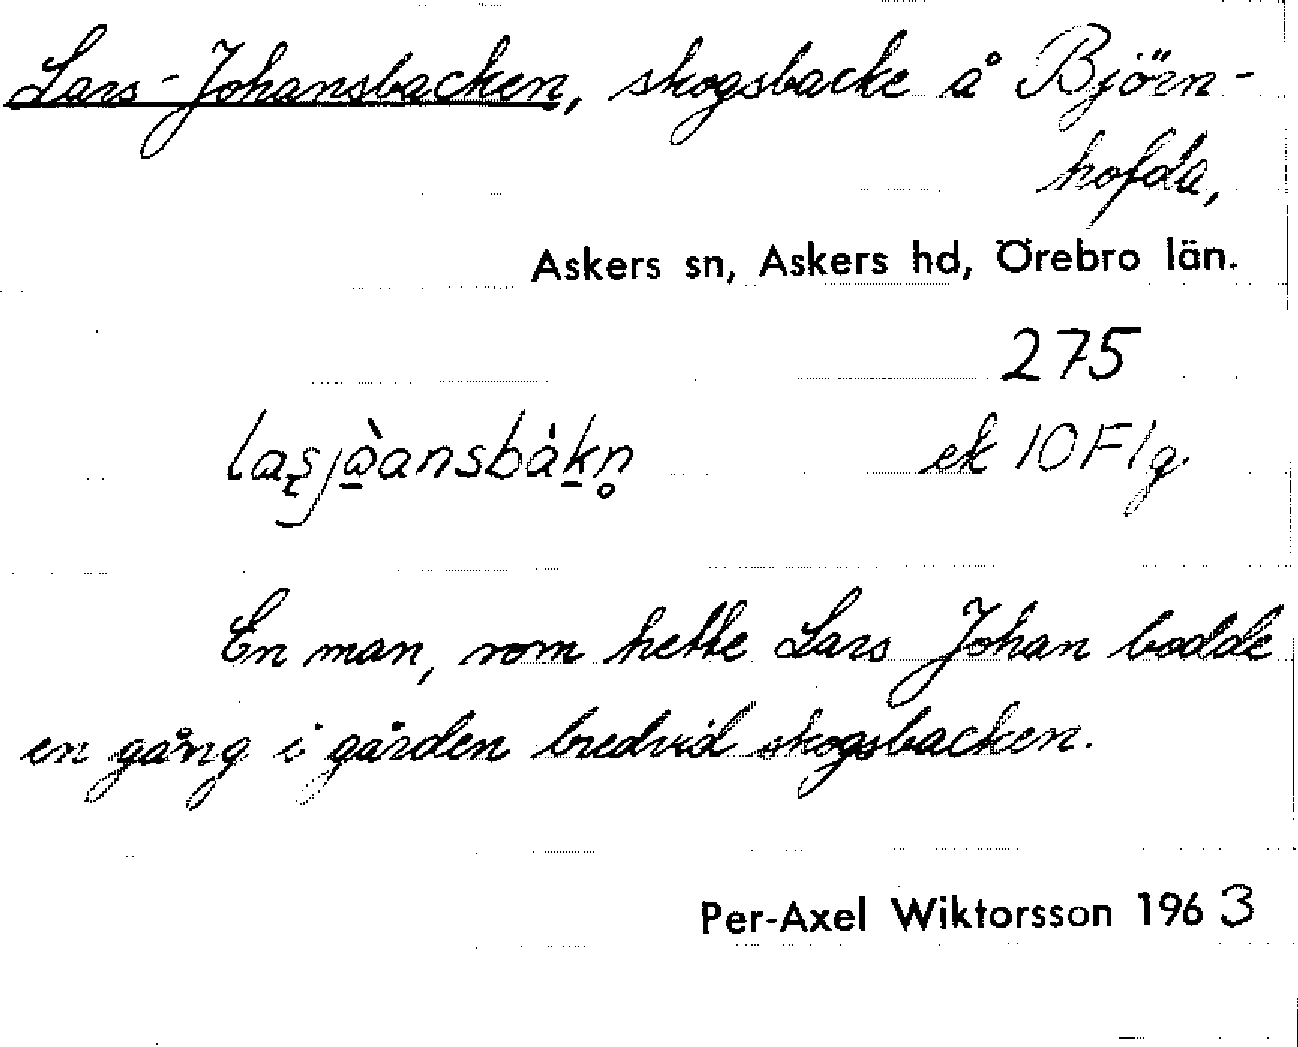 Lars-Johansbacken, skogsbacke å Björn-
hofda,
Askers sn, Askers hd, Örebro län.
275
ek 10 F1g.
En man, som hette Lars Johan bodde
en gång i gården bredvid skogsbacken.
Per-Axel Wiktorsson 1963